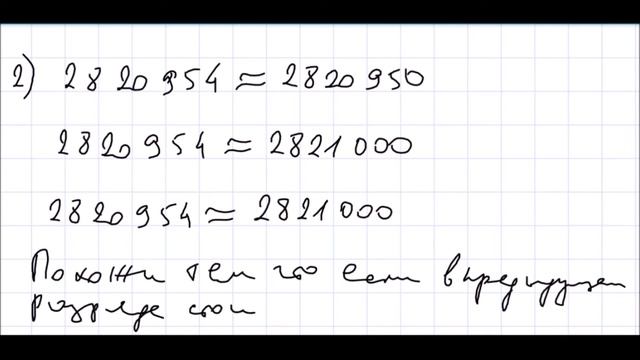 2) 2820954 ≈ 2820950
2820954 ≈ 2821000
2820954 ≈ 2821000
Похожи тем что если в предыдущем
разряде стои